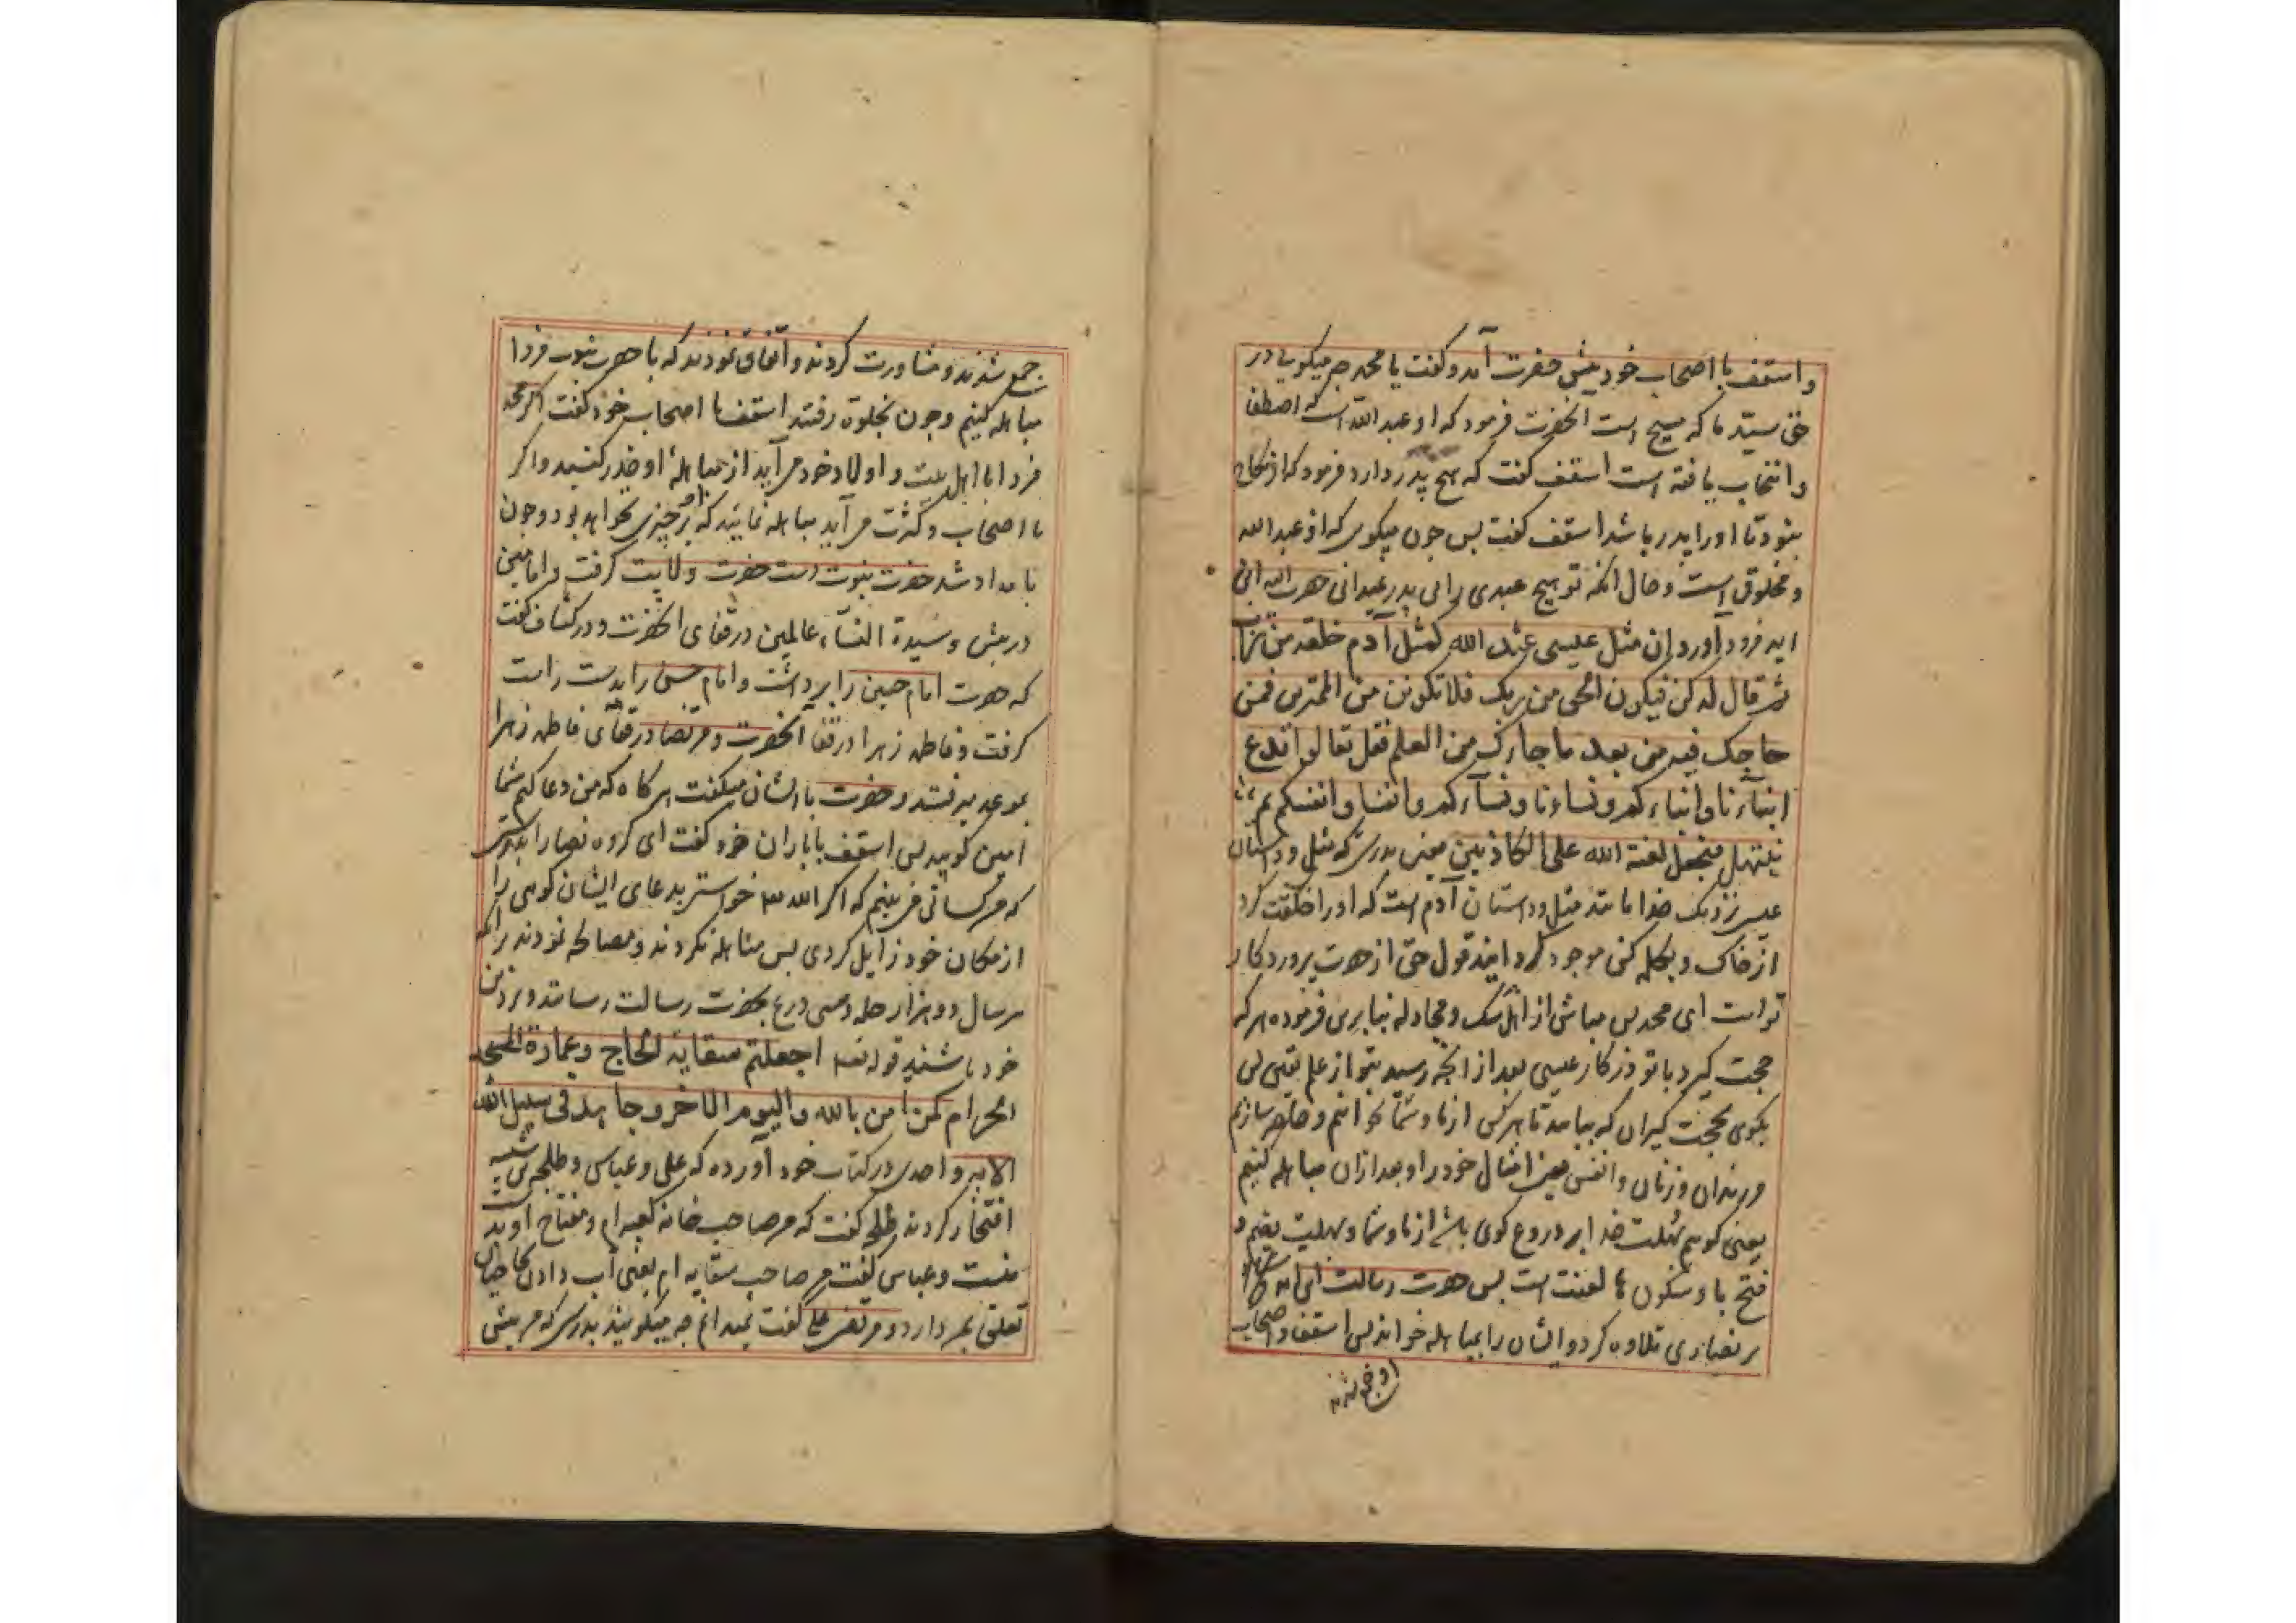 واسقف با اصحاب خود پیش حضرت آمد و گفت یا محمد چه میکویی در
حق سید ما که مسیح است آنحضرت فرمود که او عبد الله است که اصطفا
و انتخاب یافته است اسقف کفت که هیچ پدر دارد فرمود که از نکاح
نبود تا او را پدر باشد اسقف کفت پس چون میکوی که او عبد الله
و مخلوق است و حال آنکه تو هیچ عبدی را بی پدر حضرت الله این
ایه فرود آورد ان مثل عیسی عند الله کمثل آدم خلقه من تراب
ثم قال له کن فیکون الحق من ربک فلا تکونن من الممترین فمن
حاجک فیه من بعد ما جاءک من العلم فقل تعالوا ندع
ابناءنا و ابناءکم و نساءنا و نساءکم و انفسنا و انفسکم ثم
نبتهل فنجعل لعنة الله علی الکاذبین یعنی بدرستی که مثل و داستان
عیسی نزدیک خدا مانند مثل و داستان آدم است که او را خلقت کرد
از خاک و بکلمه کن موجود کردانید قول حق از حضرت پروردکار
تو است ای محمد پس مباش از اهل شک و مجادله بنابرین فرموده هر که
حجت کیرد با تو در کار عیسی بعد از آنچه رسید بتو از علم یقین پس
بکوی بحجت کیران که بیایید تا هر کس از ما و شما بخوانیم و حاضر سازیم
فرزندان و زنان و انفس یعنی امثال خود را و بعد ازان مباهله کنیم
یعنی کوییم بهلت خدا بر دروغ کوی باشد از ما و شما و بهلت بضم و
فتح با و سکون ها لعنت است پس حضرت رسالت این ایه
بر نصاری تلاوه کرد و ایشان را بمباهله خواند پس اسقف و اصحاب
او جمع شدند
جمع شدند و مشاورت کردند و اتفاق نمودند که با حضرت نبوت فردا
مباهله کنیم و چون بخلوة رفتند اسقف با اصحاب خود کفت اکر محمد
فردا با اهل بیت و اولاد خود می آید از مباهله او حذر کنید و اکر
با اصحاب و کثرت می آید مباهله نمایید که بر چیزی نخواهد بود و چون
بامداد شد حضرت نبوت دست حضرت ولایت کرفت و امامین
در پیش و سیدة النساء عالمین در قفای آنحضرت و در کشاف کفت
که حضرت امام حسین را برداشت و امام حسن را بدست راست
کرفت و فاطمه زهرا در قفا آنحضرت و مرتضا در قفای فاطمه زهرا
بموعد میرفتند و حضرت با ایشان میکفت هر کاه که من دعا کنم شما
آمین کویید پس اسقف با یاران خود کفت ای کروه نصارا بدرستی
که من کسانی می بینم که اگر الله خواستی بدعای ایشان کوهی را
از مکان خود زایل کردی پس مباهله نکردند و مصالحه نمودند برانکه
هر سال دو هزار حله و سی درع بحضرت رسالت رسانند و بر دین
خود باشند قوله تعه اجعلتم سقایة الحاج و عمارة المسجد
الحرام کمن آمن بالله و الیوم الاخر و جاهد فی سبیل الله
الایه واحدی در کتاب خود آورده که علی و عباس و طلحه بن شیبه
افتخار کردند طلحه کفت که من صاحب خانه کعبه ام و مفتاح او بدست
منست و عباس کفت من صاحب سقایه ام یعنی آب دادن حاجیان
تعلق بمن دارد و مرتضی علی کفت نمیدانم چه میکویید بدرستی که من پیش